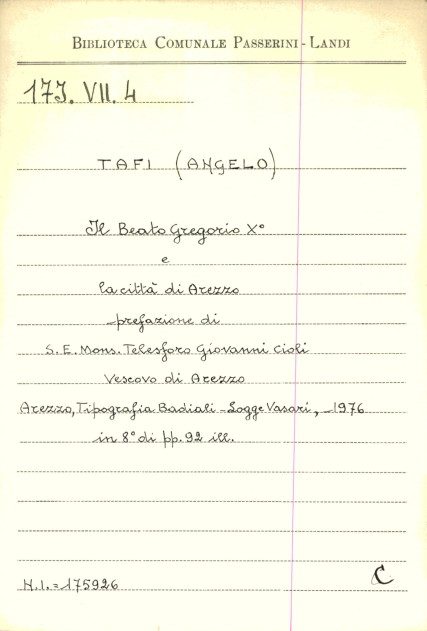 BIBLIOTECA COMUNALE PASSERINI - LANDI
17J. VII. 4
TAFI (ANGELO)
Il Beato Gregorio X°
e
la città di Arezzo
prefazione di
S. E. Mons. Telesforo Giovanni Cioli
Vescovo di Arezzo
Arezzo, Tipografia Badiali - Logge Vasari, 1976
in 8° di pp. 92 ill.
N.I. = 175926
C